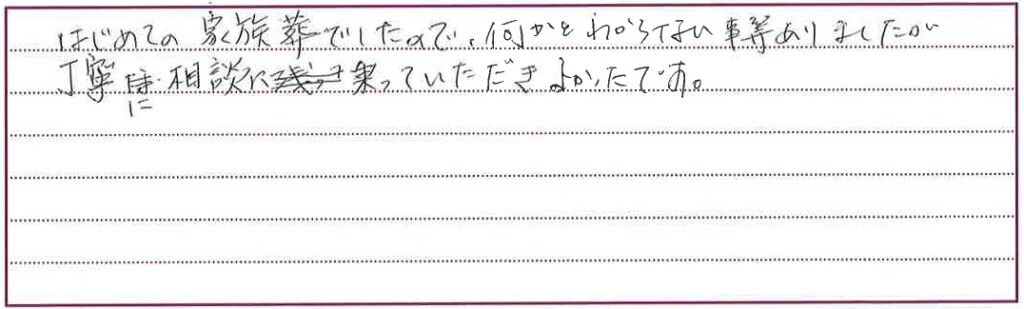 はじめての家族葬でしたので、何かとわからない事等ありましたが
丁寧に相談に乗っていただきよかったです。